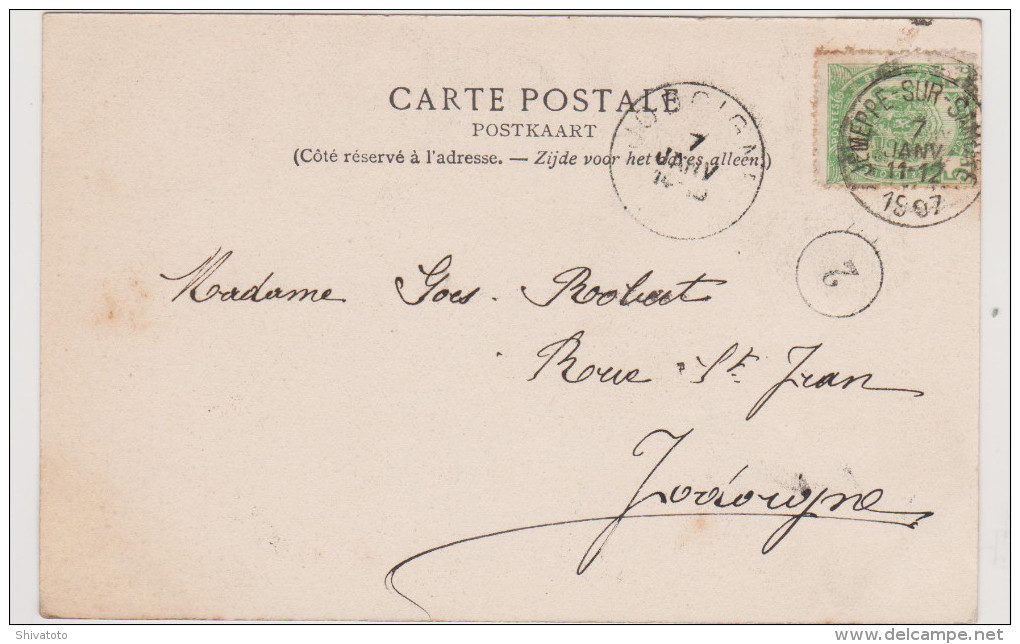 CARTE POSTALE
POSTKAART
(Côté réservé à l'adresse. — Zijde voor het adres alleen.)
JODOIGNE
7
JANV
POSTES
JEMEPPE-SUR-SAMBRE
7
JANV
11-12
1907
2
Madame Goes. Robert
Rue St Jean
Jodoigne
Shivatoto
www.delcampe.net